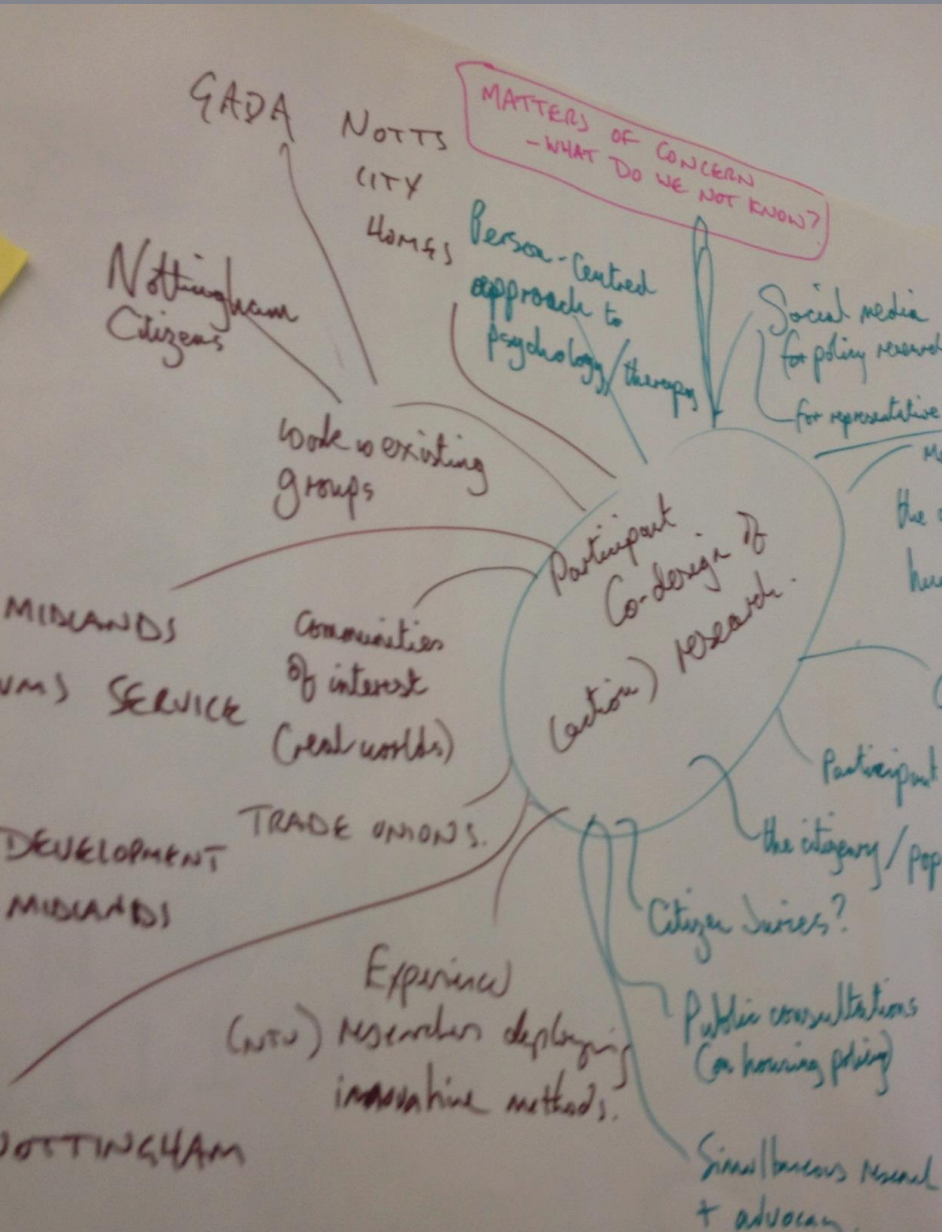 GADA
NOTTS
CITY
HOMES
MATTERS OF CONCERN
- WHAT DO WE NOT KNOW?
Person-Centred
approach to
psychology/therapy
Social media
for policy research
for representative
Nottingham
Citizens
work w existing
groups
Participant
Co-design of
(action) research.
the
MIDLANDS
UMS SERVICE
Communities
of interest
(real worlds)
TRADE UNIONS.
DEVELOPMENT
MIDLANDS
Participant
the citizenry/pop
Citizen Juries?
Public consultations
(on housing policy)
Experienced
(NTU) researchers deploying
innovative methods.
NOTTINGHAM
Simultaneous research
+ advocacy